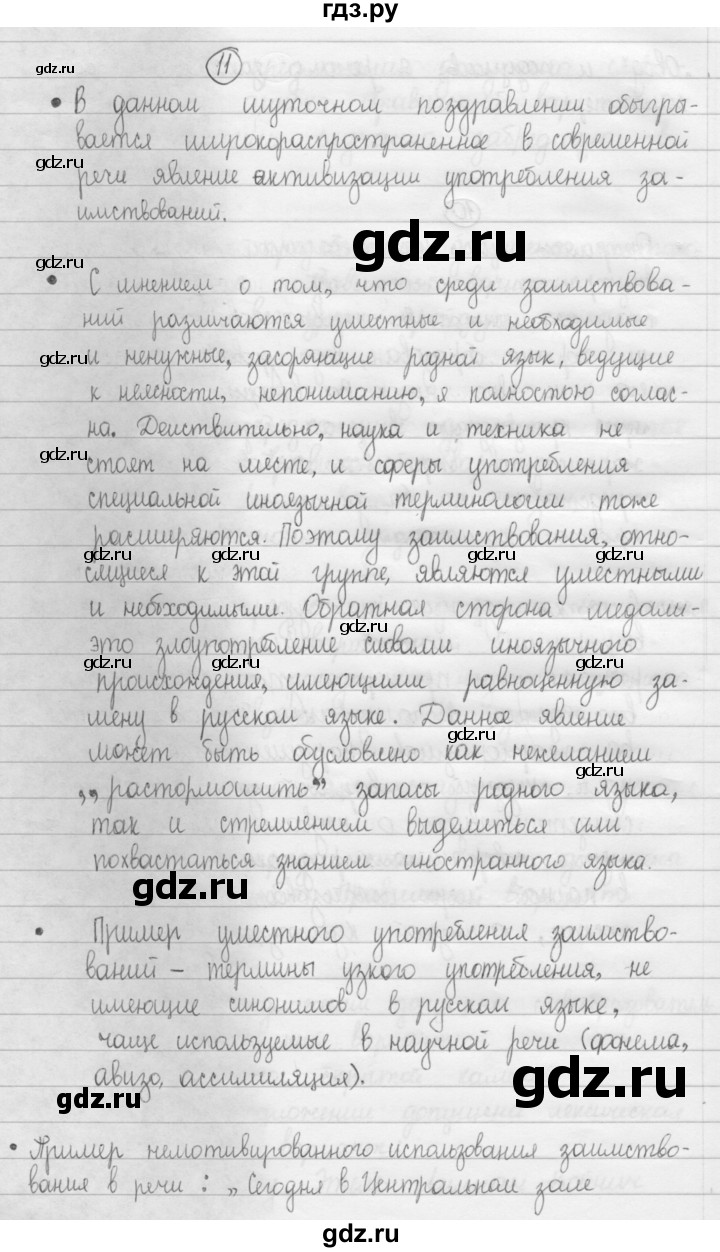 гдз.ру
11
gdz.ru
• В данном шуточном поздравлении обыгры-
вается широкораспространенное в современной
gdz.ru
речи явление активизации употребления за-
имствований.
gdz.ru
gdz.ru
• С мнением о том, что среди заимствова-
ний различаются уместные и необходимые
и ненужные, засоряющие родной язык, ведущие
gdz.ru
к неясности, непониманию, я полностью соглас-
на. Действительно, наука и техника не
gdz.ru
стоят на месте, и сферы употребления
специальной иноязычной терминологии тоже
расширяются. Поэтому заимствования, отно-
gdz.ru gdz.ru gdz.ru gdz.ru
сящиеся к этой группе, являются уместными
и необходимыми. Обратная сторона медали-
gdz.ru
это злоупотребление словами иноязычного
gdz.ru gdz.ru gdz.ru
происхождения, имеющими равноценную за-
мену в русском языке. Данное явление
gdz.ru
может быть обусловлено как нежеланием
gdz.ru
„растормошить” запасы родного языка,
так и стремлением выделиться или
похвастаться знанием иностранного языка.
gdz.ru
• Пример уместного употребления заимство-
ваний – термины узкого употребления, не
имеющие синонимов в русском языке,
чаще используемые в научной речи (фонема,
авизо, ассимиляция).
gdz.ru
gdz.ru
• Пример немотивированного использования заимство-
вания в речи: „Сегодня в Центральном зале
gdz.ru